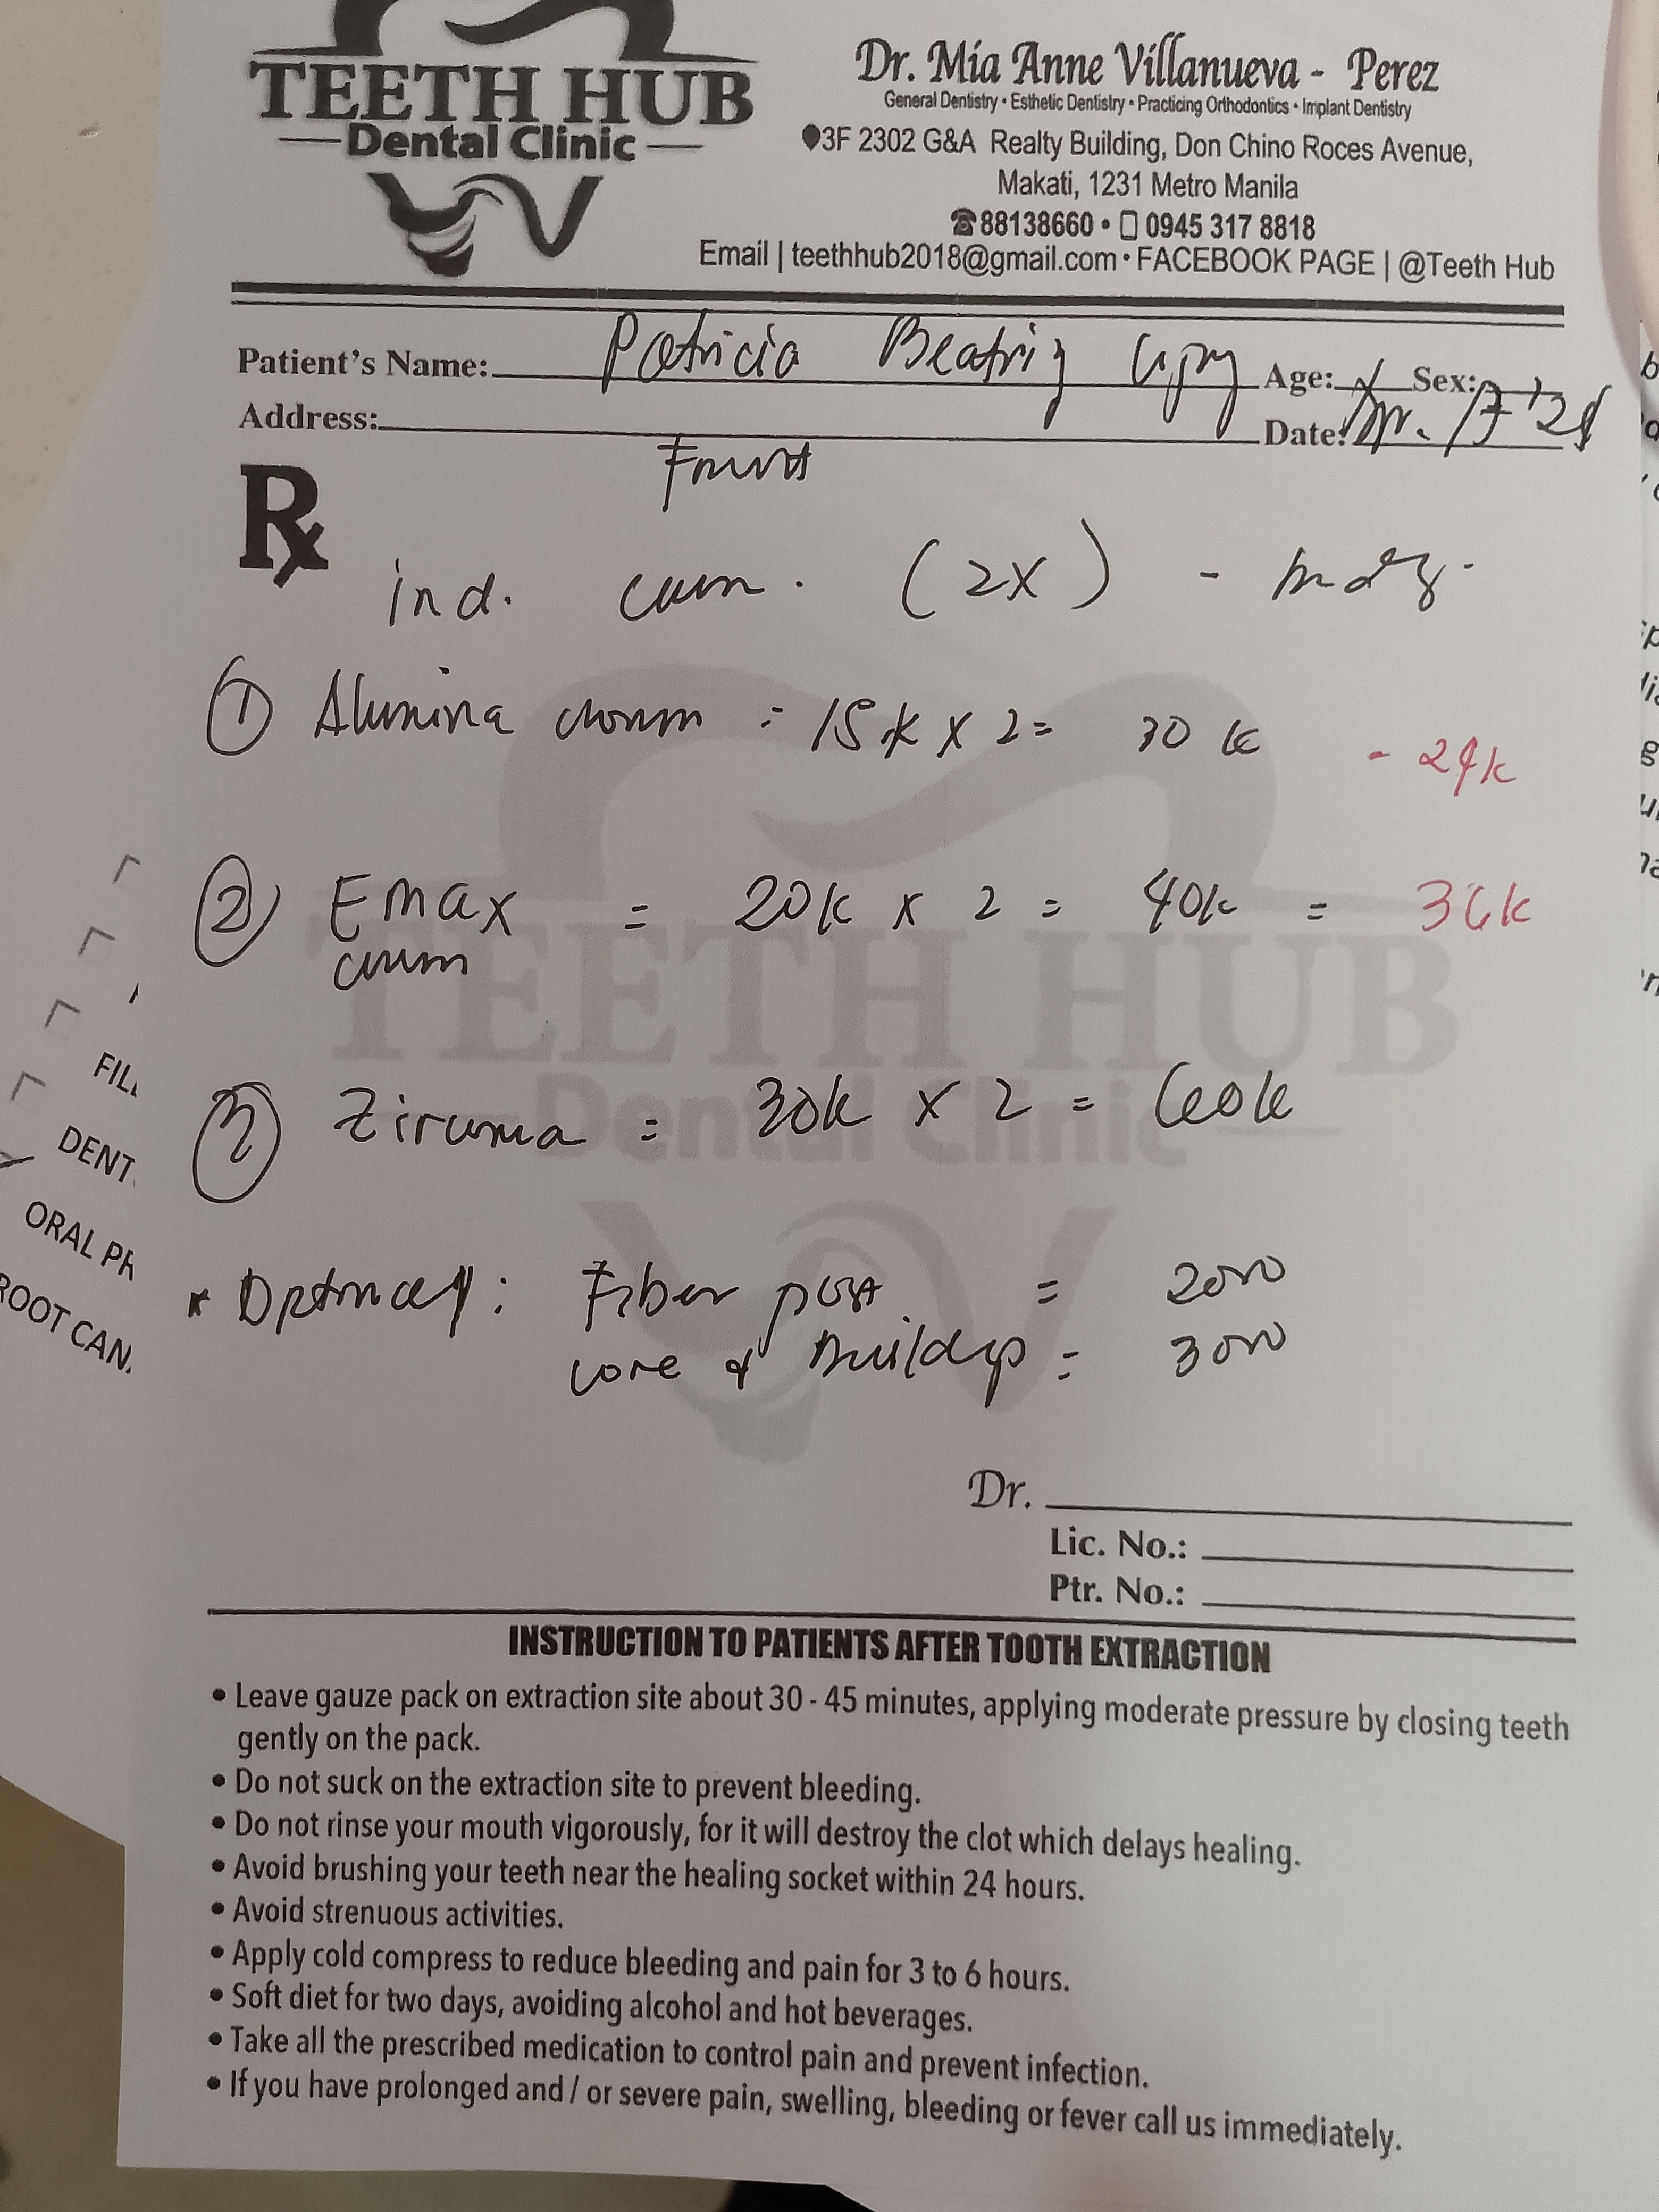 TEETH HUB
Dental Clinic
Dr. Mia Anne Villanueva - Perez
General Dentistry • Esthetic Dentistry • Practicing Orthodontics • Implant Dentistry
3F 2302 G&A Realty Building, Don Chino Roces Avenue,
Makati, 1231 Metro Manila
88138660 • 0945 317 8818
Email | teethhub2018@gmail.com • FACEBOOK PAGE | @Teeth Hub
Patient's Name: Patricia Beatriz Age: Sex:
Address: Date:
Rx
ind. (2x) -
1 Alumina = 15k x 2 = 30k - 24k
2 Emax = 20k x 2 = 40k = 36k
3 = 30k x 2 = 60k
* Fiber post = 2000
core & Buildup = 3000
TEETH HUB
Dental Clinic
Dr.
Lic. No.:
Ptr. No.:
INSTRUCTION TO PATIENTS AFTER TOOTH EXTRACTION
• Leave gauze pack on extraction site about 30 - 45 minutes, applying moderate pressure by closing teeth
gently on the pack.
• Do not suck on the extraction site to prevent bleeding.
• Do not rinse your mouth vigorously, for it will destroy the clot which delays healing.
• Avoid brushing your teeth near the healing socket within 24 hours.
• Avoid strenuous activities.
• Apply cold compress to reduce bleeding and pain for 3 to 6 hours.
• Soft diet for two days, avoiding alcohol and hot beverages.
• Take all the prescribed medication to control pain and prevent infection.
• If you have prolonged and / or severe pain, swelling, bleeding or fever call us immediately.
DENT
ORAL
ROOT CAN